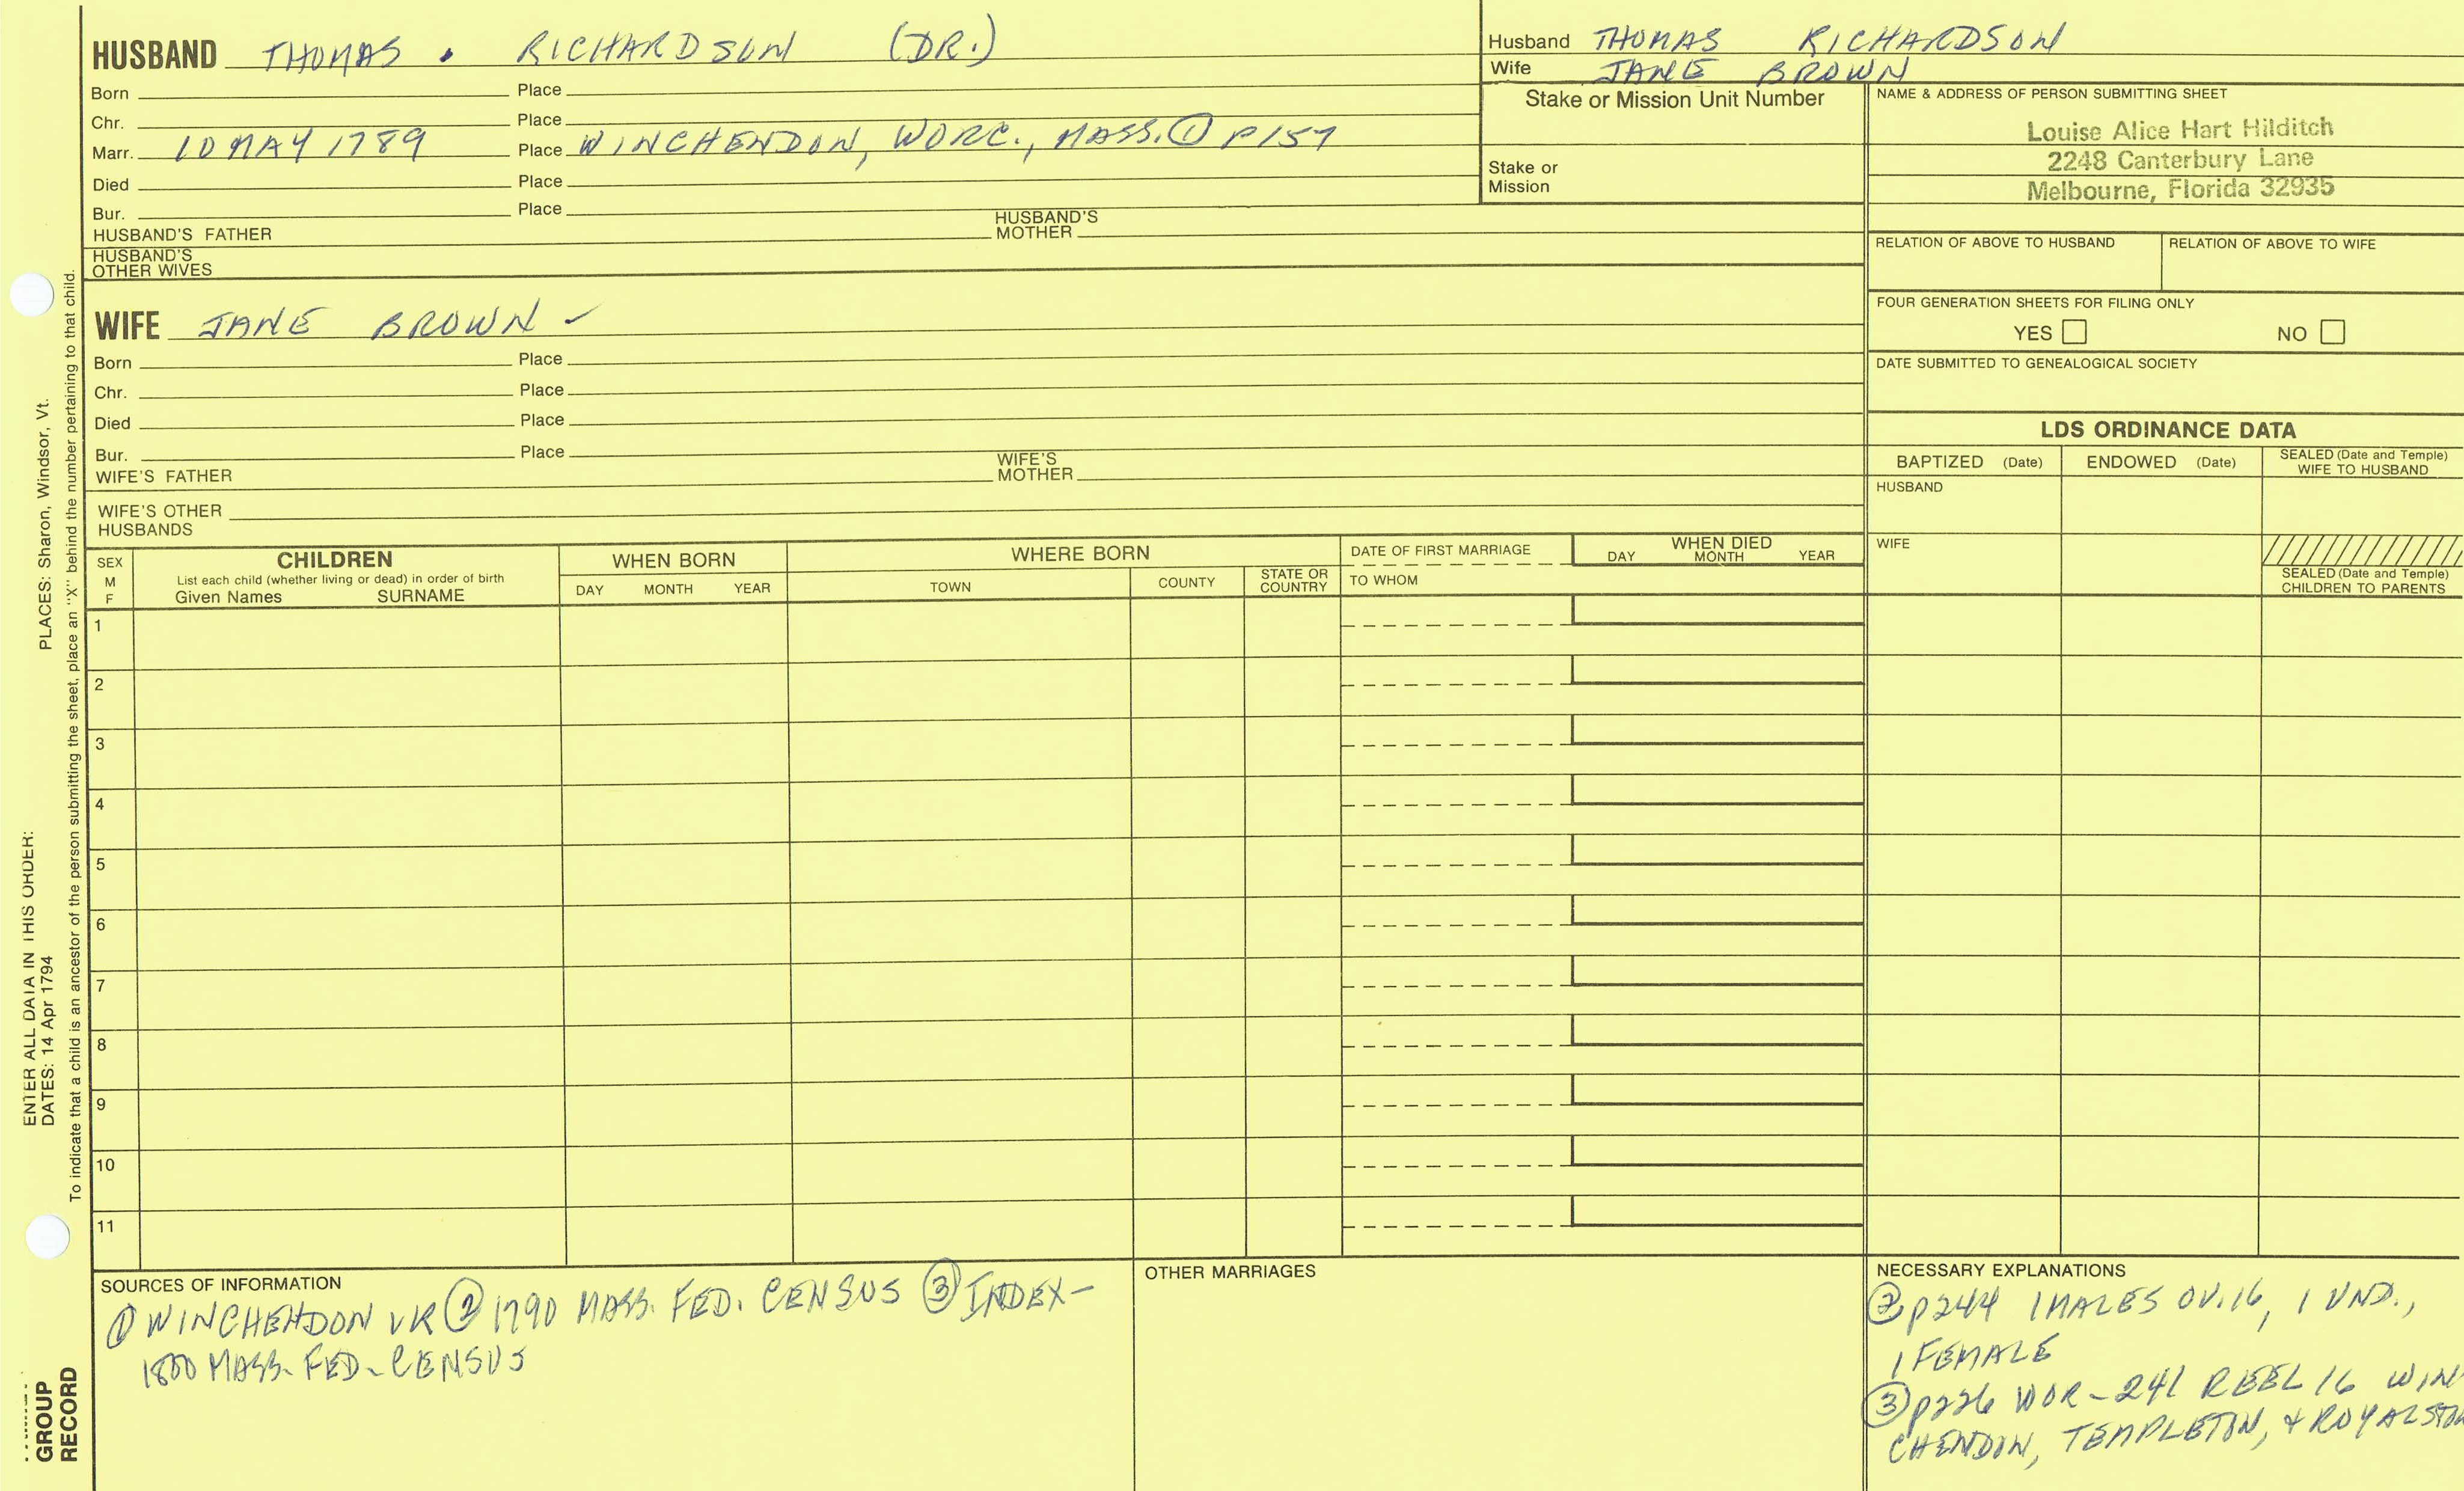 HUSBAND THOMAS . RICHARDSON (DR.)
Born Place
Chr. Place
Marr. 10 MAY 1789 Place WINCHENDON, WORC., MASS. ① P157
Died Place
Bur. Place
HUSBAND'S FATHER HUSBAND'S MOTHER
HUSBAND'S OTHER WIVES
Husband THOMAS RICHARDSON
Wife JANE BROWN
Stake or Mission Unit Number
Stake or Mission
NAME & ADDRESS OF PERSON SUBMITTING SHEET
Louise Alice Hart Hilditch
2248 Canterbury Lane
Melbourne, Florida 32935
RELATION OF ABOVE TO HUSBAND RELATION OF ABOVE TO WIFE
FOUR GENERATION SHEETS FOR FILING ONLY
YES NO
DATE SUBMITTED TO GENEALOGICAL SOCIETY
WIFE JANE BROWN -
Born Place
Chr. Place
Died Place
Bur. Place
WIFE'S FATHER WIFE'S MOTHER
WIFE'S OTHER HUSBANDS
LDS ORDINANCE DATA
BAPTIZED (Date) ENDOWED (Date) SEALED (Date and Temple) WIFE TO HUSBAND
HUSBAND
WIFE
SEALED (Date and Temple) CHILDREN TO PARENTS
SEX M F
CHILDREN
List each child (whether living or dead) in order of birth
Given Names SURNAME
WHEN BORN
DAY MONTH YEAR
WHERE BORN
TOWN COUNTY STATE OR COUNTRY
DATE OF FIRST MARRIAGE
TO WHOM
WHEN DIED
DAY MONTH YEAR
1
2
3
4
5
6
7
8
9
10
11
SOURCES OF INFORMATION
① WINCHENDON VR ② 1790 MASS. FED. CENSUS ③ INDEX-
1800 MASS. FED. CENSUS
OTHER MARRIAGES
NECESSARY EXPLANATIONS
② p244 1 MALES OV. 16, 1 UND.,
1 FEMALE
③ p226 WOR-241 REEL 16 WIN
CHENDON, TEMPLETON, & ROYALSTON
ENTER ALL DATA IN THIS ORDER:
DATES: 14 Apr 1794 PLACES: Sharon, Windsor, Vt.
To indicate that a child is an ancestor of the person submitting the sheet, place an "X" behind the number pertaining to that child.
GROUP
RECORD